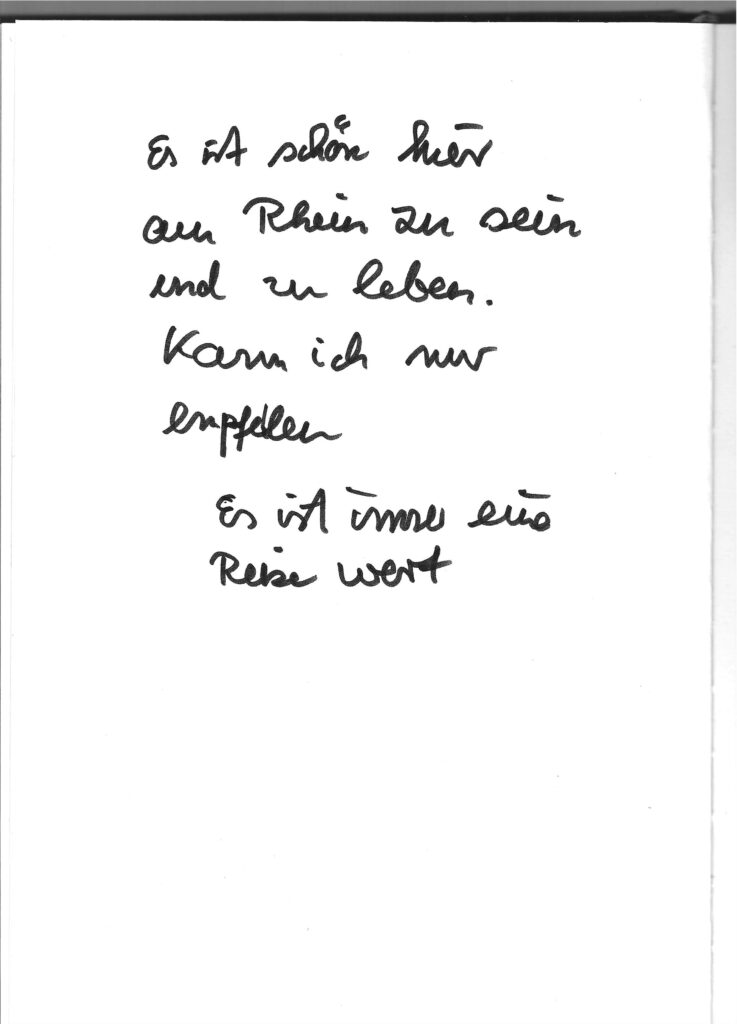 Es ist schön hier
am Rhein zu sein
und zu leben.
Kann ich nur
empfehlen
Es ist immer eine
Reise wert